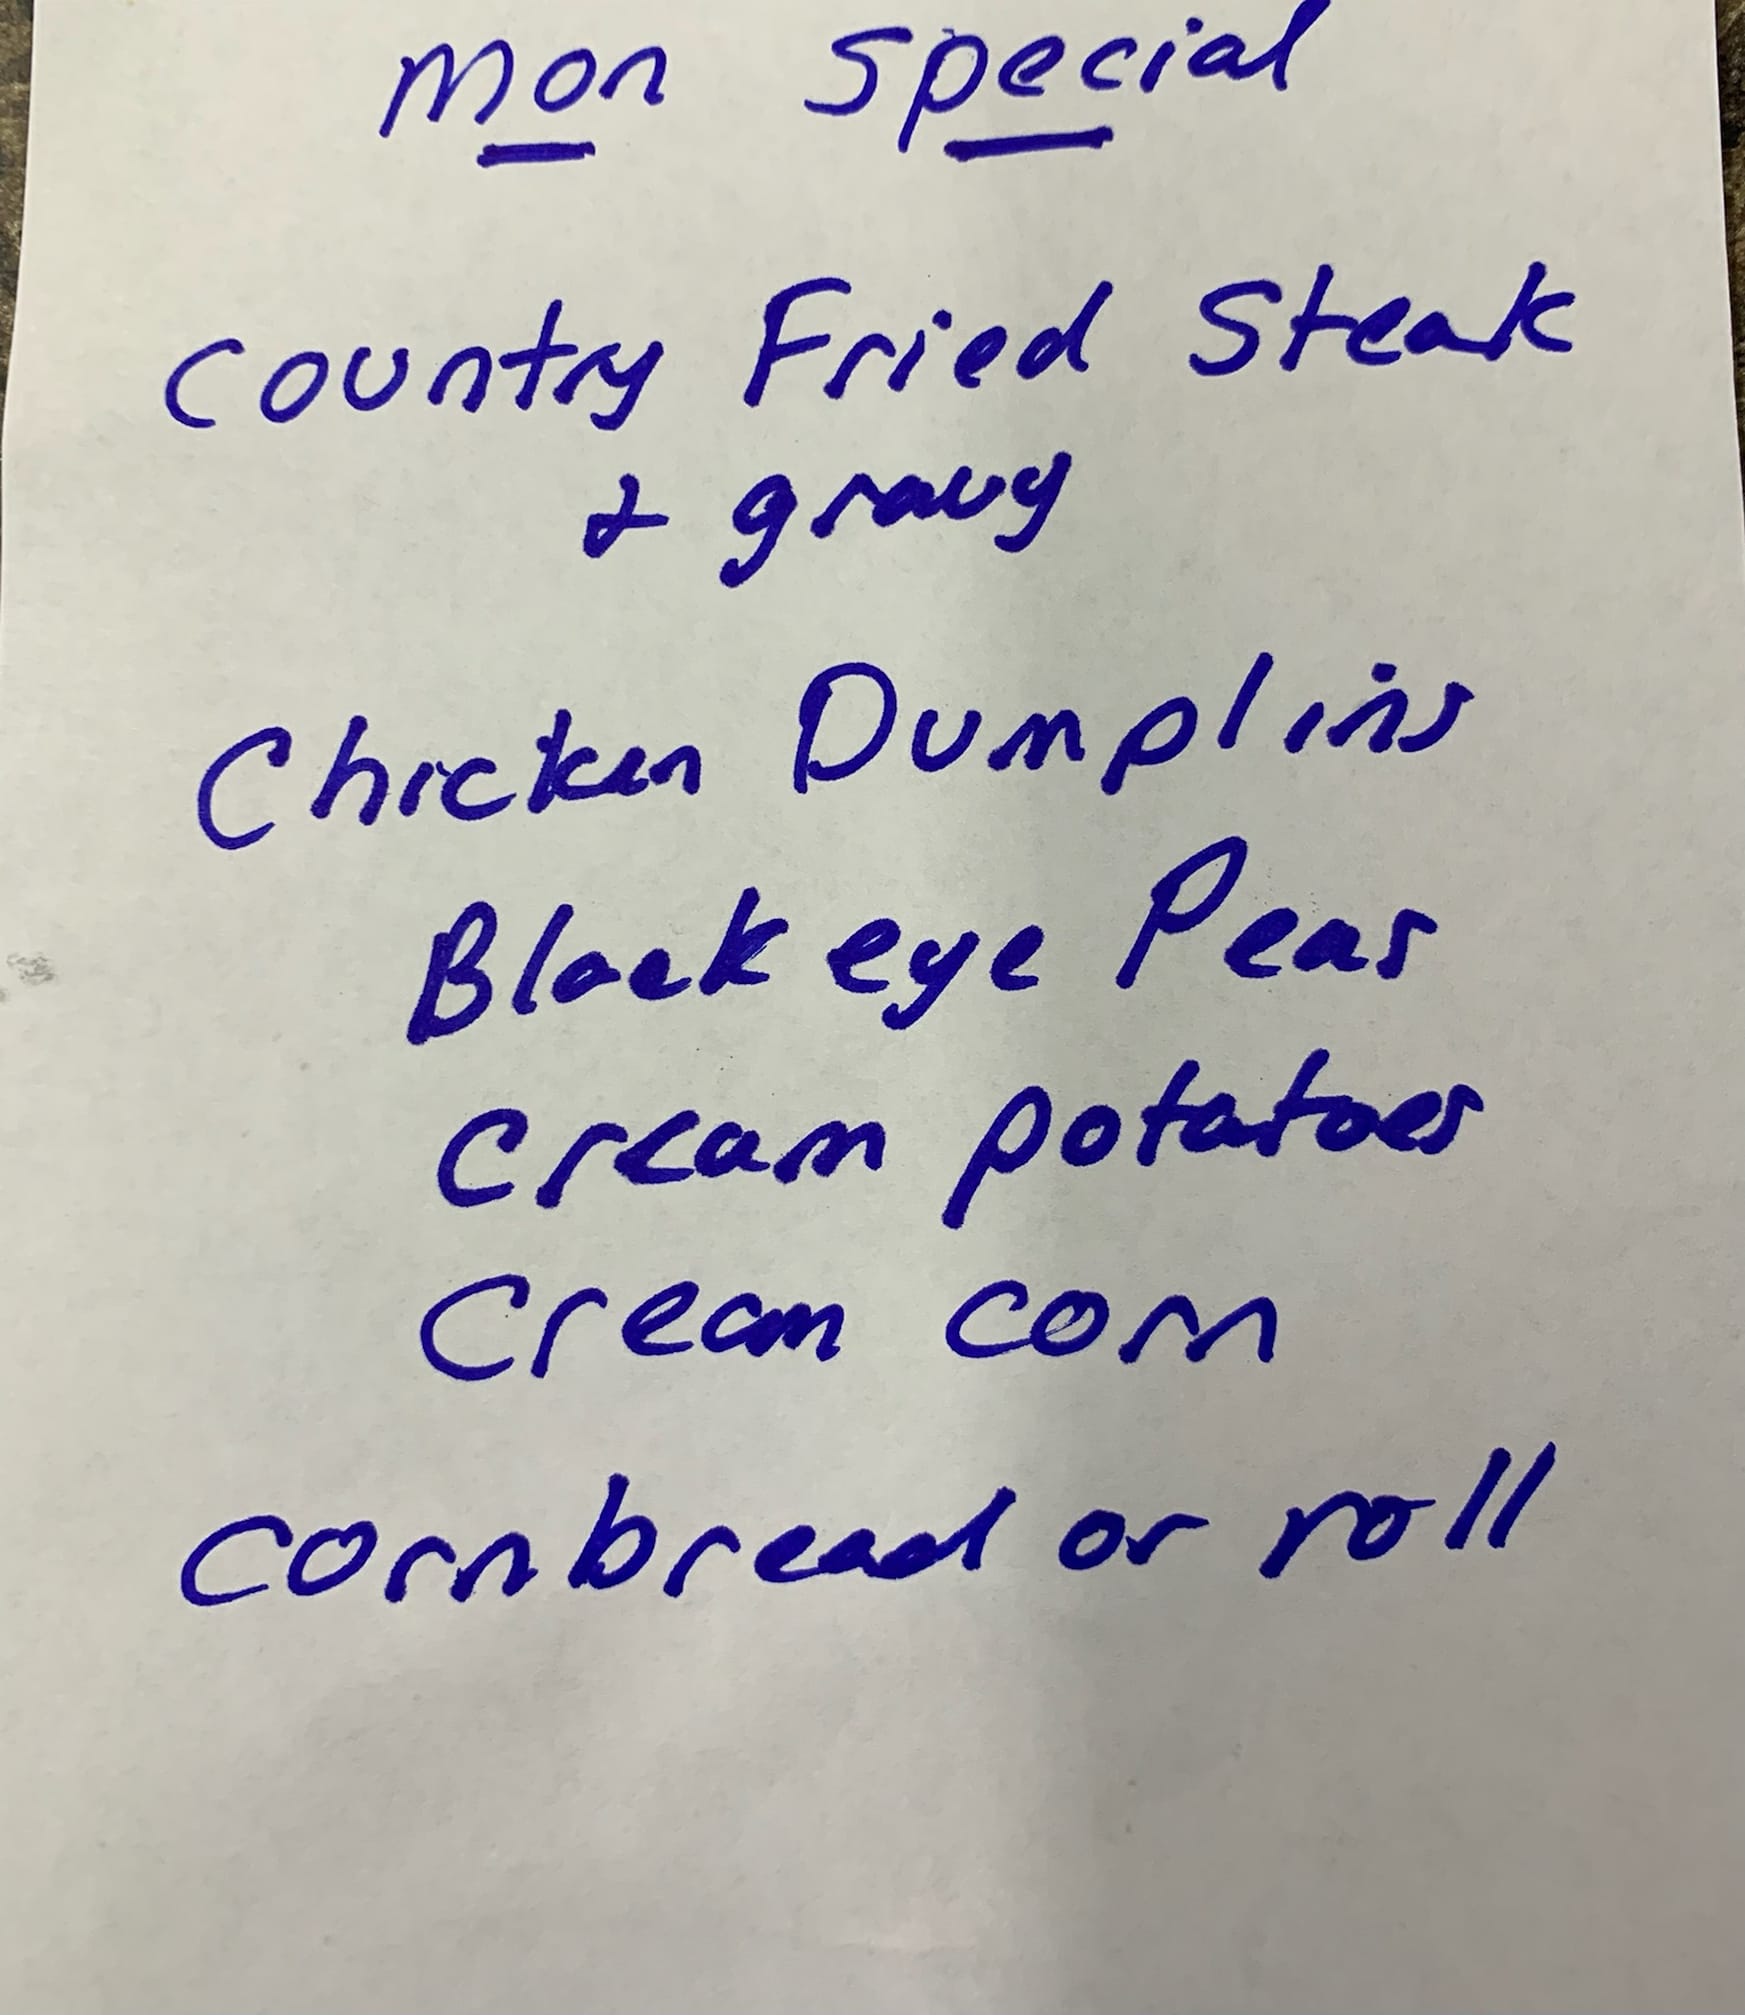 Mon Special
Country Fried Steak
& gravy
Chicken Dumplins
Black eye Peas
Cream potatoes
Cream corn
cornbread or roll